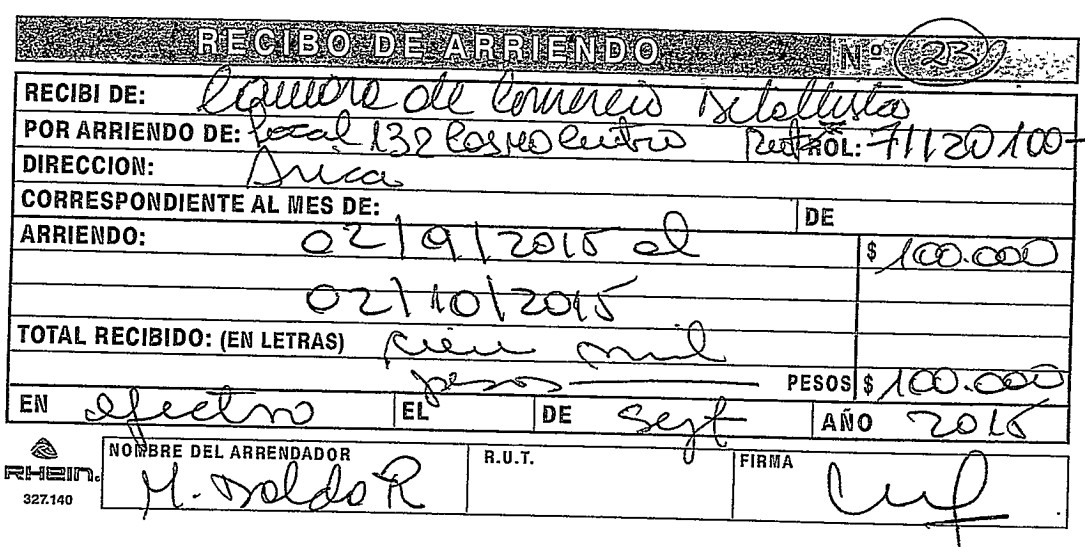 RECIBO DE ARRIENDO Nº 23
RECIBI DE: Camara de Comercio Detallista
POR ARRIENDO DE: Local 132 Cosmo Centro Rut ROL: 71120100-
DIRECCION: Arica
CORRESPONDIENTE AL MES DE: DE
ARRIENDO: 02/9/2015 al $ 100.000
02/10/2015
TOTAL RECIBIDO: (EN LETRAS) cien mil
pesos PESOS $ 100.000
EN efectivo EL DE Sept AÑO 2015
NOMBRE DEL ARRENDADOR R.U.T. FIRMA
RHEIN. M. R
327.140